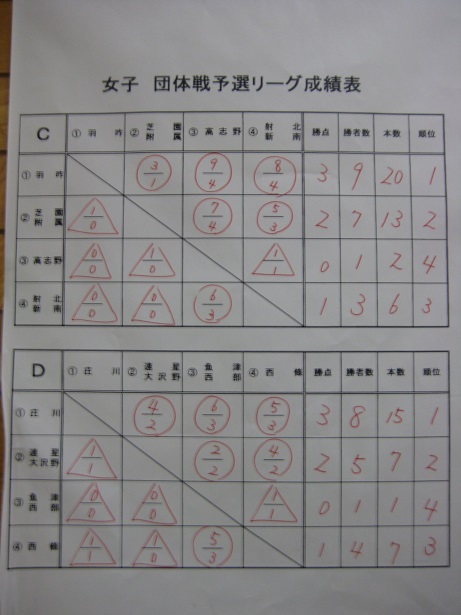 女子 団体戦予選リーグ成績表
C ①羽咋 ②芝園附属 ③高志野 ④射北新南 勝点 勝者数 本数 順位
①羽咋 3/1 9/4 8/4 3 9 20 1
②芝園附属 1/0 7/4 5/3 2 7 13 2
③高志野 0/0 1/0 1/1 0 1 2 4
④射北新南 0/0 0/0 6/3 1 3 6 3
D ①庄川 ②速星大沢野 ③魚津西部 ④西條 勝点 勝者数 本数 順位
①庄川 4/2 6/3 5/3 3 8 15 1
②速星大沢野 1/1 2/2 4/2 2 5 7 2
③魚津西部 0/0 0/0 1/1 0 1 1 4
④西條 1/1 1/0 5/3 1 4 7 3